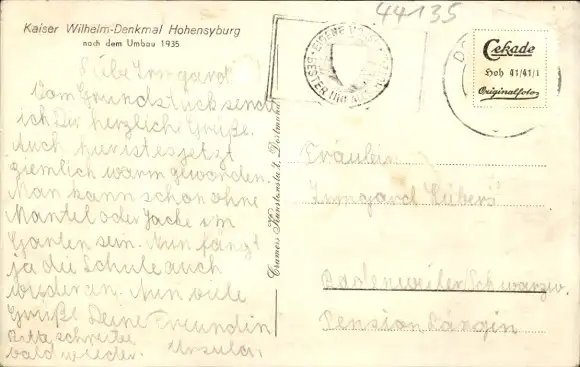 Kaiser Wilhelm-Denkmal Hohensyburg
nach dem Umbau 1935
44135
Liebe Irmgard
Vom Grundstück sende
ich Dir herzliche Grüße.
Auch hier ist es jetzt
ziemlich warm geworden.
Man kann schon ohne
Mantel oder Jacke im
Garten sein. Nun fängt
ja die Schule auch
wieder an. Nun viele
Grüße Deine Freundin
Ursula
Bitte, schreibe
bald wieder.
Cramers Kunstanstalt, Dortmund
Cekade
Hoh 41/41/1
Originalfoto
Fräulein
Irmgard Lübers
Badenweiler/Schwarzw.
Pension Längin